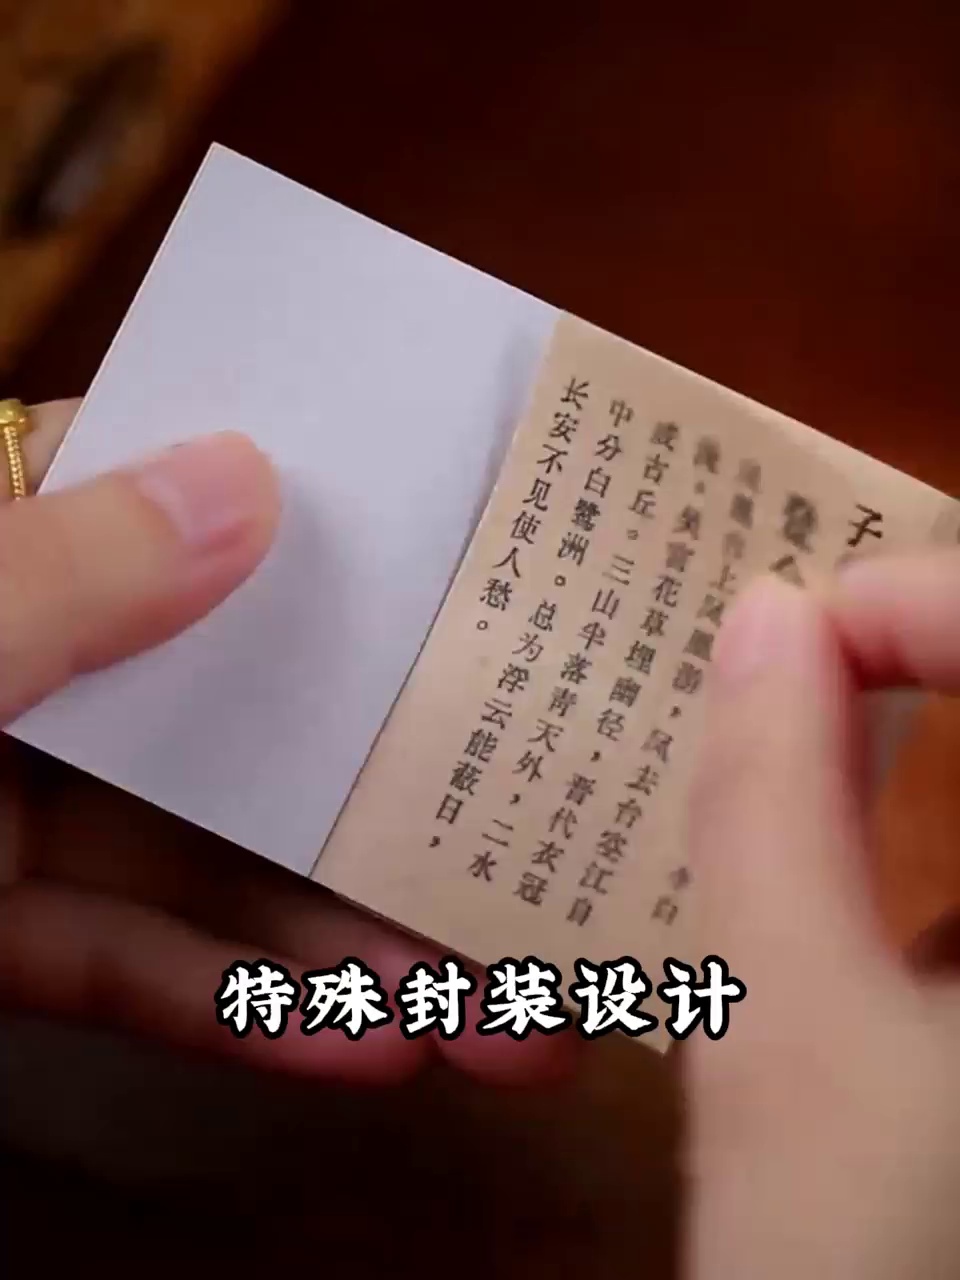 子
登 李白
凤凰台上凤凰游，凤去台空江自
流。吴宫花草埋幽径，晋代衣冠
成古丘。三山半落青天外，二水
中分白鹭洲。总为浮云能蔽日，
长安不见使人愁。
特殊封装设计